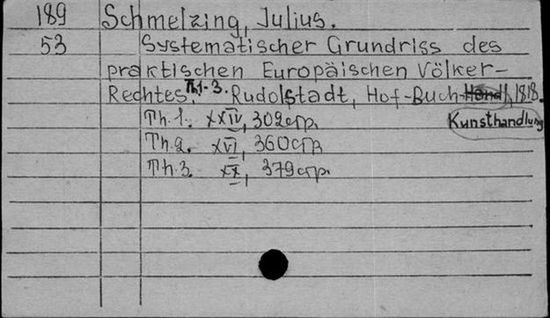 189 Schmelzing, Julius.
53 Systematischer Grundriss des
praktischen Europäischen Völker-
Rechtes. Th.1-3. Rudolstadt, Hof-Buch-Handl, 1818.
Kunsthandlung
Th.1. XXIV, 302стр.
Th.2. XVI, 360стр.
Th.3. XX, 379стр.